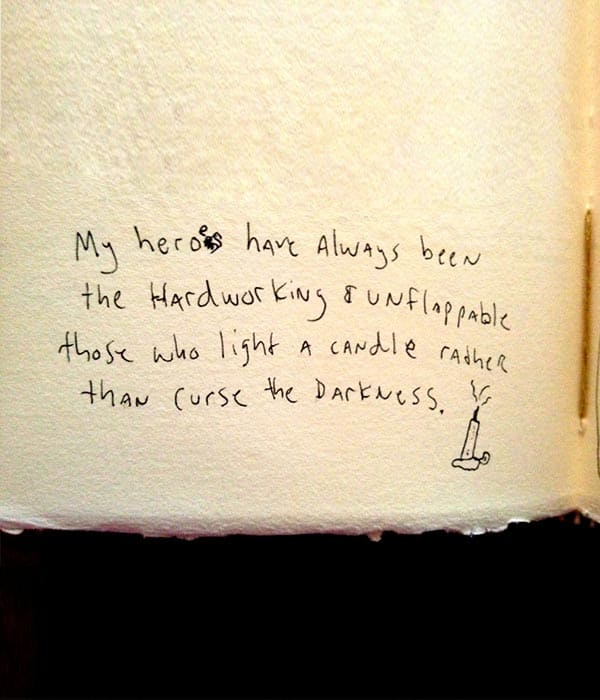 My heroes have Always been
the Hardworking & UNflappable
those who light A CANdle rather
thAN curse the DARkNess.